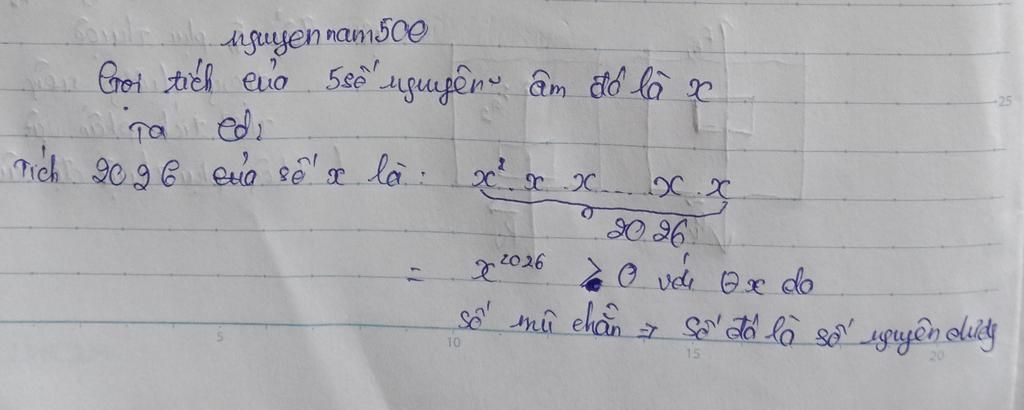 nguyennam50e
Gọi tích của 5 số nguyên âm đó là x
Ta có:
Tích 2026 của số x là: x². x . x ... x . x
2026
= x²⁰²⁶ ≥ 0 với 0x do
số mũ chẵn ⇒ số đó là số nguyên dương
25
5 10 15 20